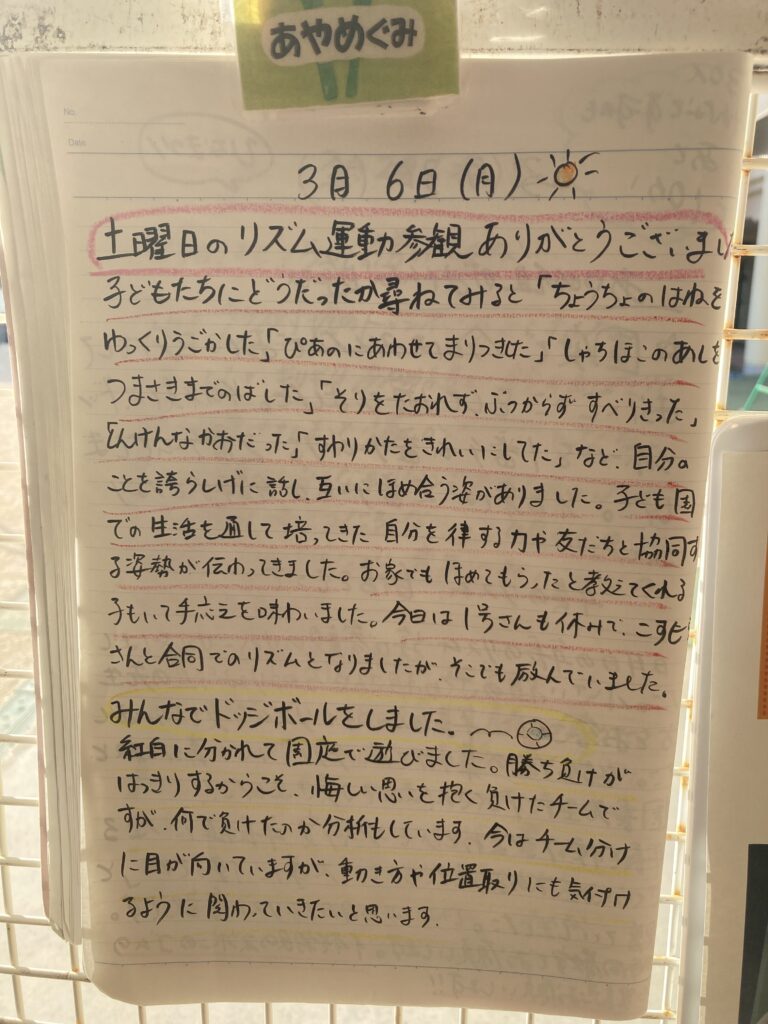 あやめぐみ
No.
Date
3月 6日 (月)
土曜日のリズム運動参観ありがとうございまし
子どもたちにどうだったか尋ねてみると「ちょうちょのはねを
ゆっくりうごかした」「ぴあのにあわせてまりつきした」「しゃちほこのあしを
つまさきまでのばした」「そりをたおれず、ぶつからず すべりきった」
「しんけんなかおだった」「すわりかたをきれいにしてた」など、自分の
ことを誇らしげに話し、互いにほめ合う姿がありました。子ども園
での生活を通して培ってきた 自分を律する力や友だちと協同す
る姿勢が伝わってきました。お家でもほめてもらったと教えてくれる
子もいて手応えを味わいました。今日は1号さんも休みで、こすも
さんと合同でのリズムとなりましたが、そこでも励んでいました。
みんなでドッジボールをしました。
紅白に分かれて園庭で遊びました。勝ち負けが
はっきりするからこそ、悔しい思いを抱く負けたチームで
すが、何で負けたのか分析もしています。今はチーム分け
に目が向いていますが、動き方や位置取りにも気付け
るように関わっていきたいと思います。